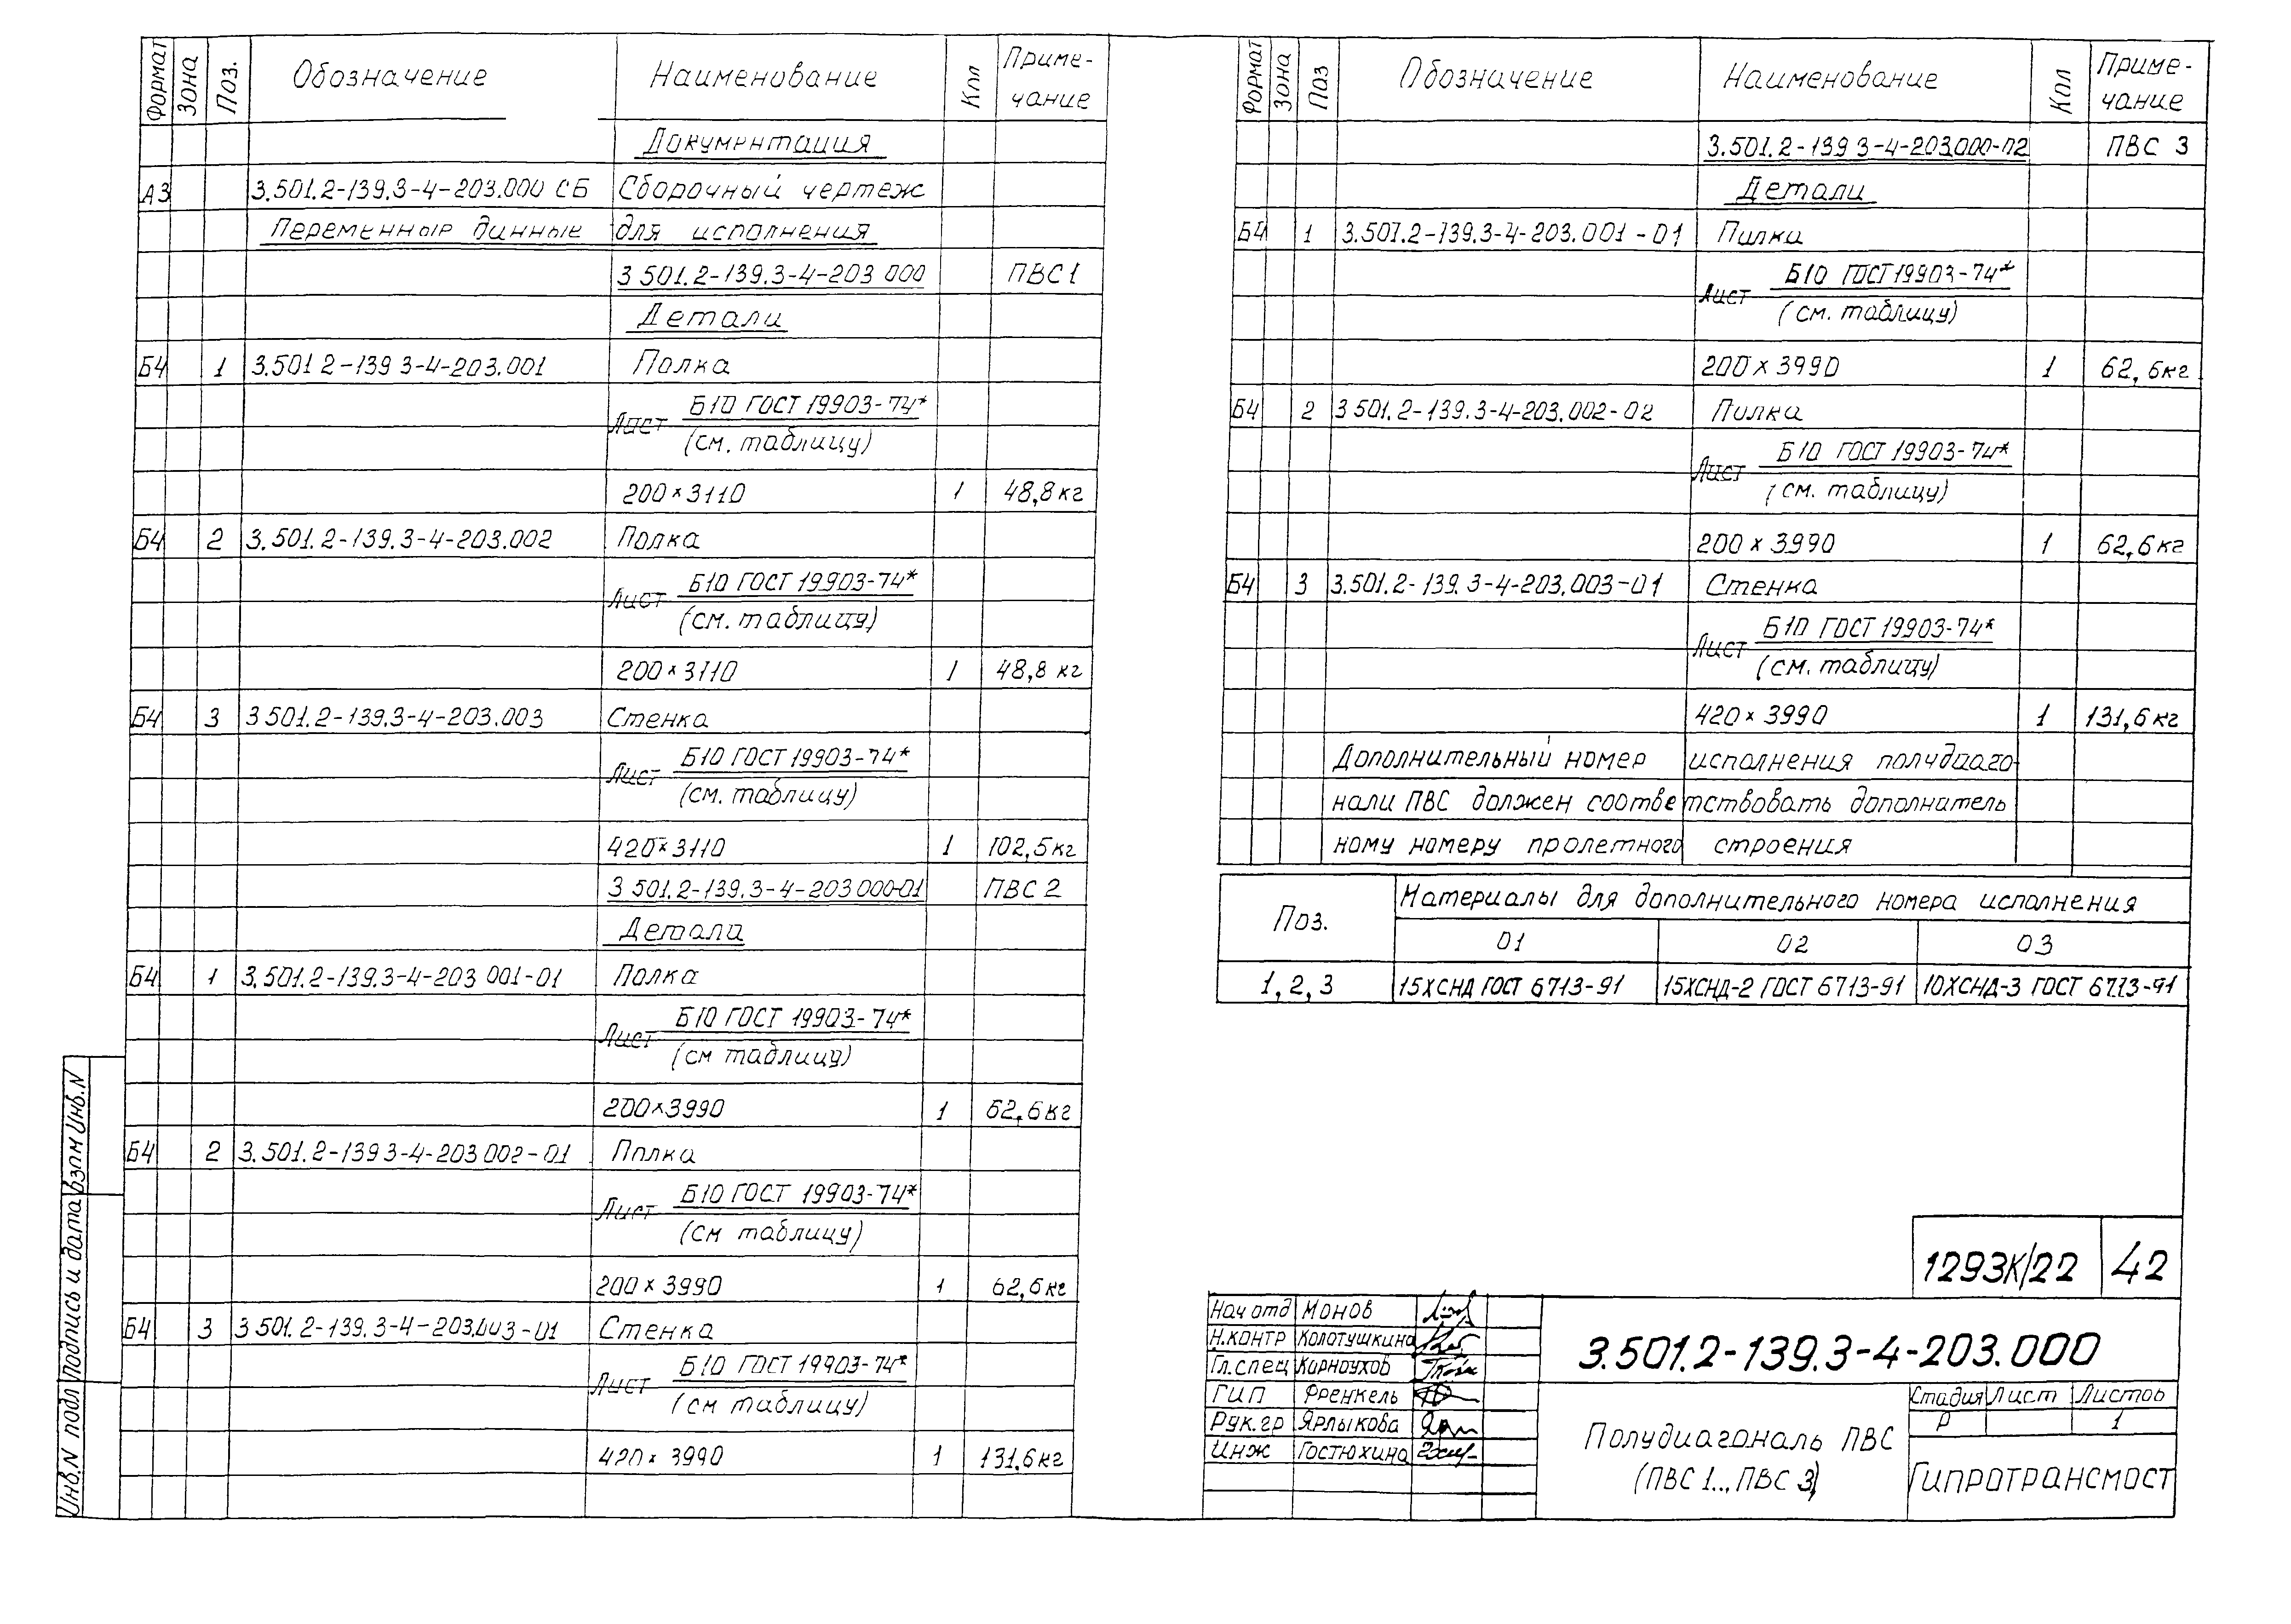 Формат Зона Поз. Обозначение Наименование Кол Приме-
чание
Документация
А3 3.501.2-139.3-4-203.000 СБ Сборочный чертеж
Переменные данные для исполнения
3 501.2-139.3-4-203 000 ПВС1
Детали
Б4 1 3.501 2-139 3-4-203.001 Полка
Лист Б10 ГОСТ 19903-74*
(см. таблицу)
200×3110 1 48,8кг
Б4 2 3.501.2-139.3-4-203.002 Полка
Лист Б10 ГОСТ 19903-74*
(см. таблицу)
200×3110 1 48,8 кг
Б4 3 3 501.2-139.3-4-203.003 Стенка
Лист Б10 ГОСТ 19903-74*
(см. таблицу)
420×3110 1 102,5кг
3 501.2-139.3-4-203 000-01 ПВС 2
Детали
Б4 1 3.501.2-139.3-4-203 001-01 Полка
Лист Б10 ГОСТ 19903-74*
(см таблицу)
200×3990 1 62,6кг
Б4 2 3.501.2-139 3-4-203 002-01 Полка
Лист Б10 ГОСТ 19903-74*
(см таблицу)
200×3990 1 62,6кг
Б4 3 3 501.2-139.3-4-203.003-01 Стенка
Лист Б10 ГОСТ 19903-74*
(см таблицу)
420×3990 1 131,6кг
Формат Зона Поз Обозначение Наименование Кол Приме-
чание
3.501.2-139 3-4-203.000-02 ПВС 3
Детали
Б4 1 3.501.2-139.3-4-203.001-01 Полка
Лист Б10 ГОСТ 19903-74*
(см. таблицу)
200×3990 1 62,6кг
Б4 2 3 501.2-139.3-4-203.002-02 Полка
Лист Б10 ГОСТ 19903-74*
(см. таблицу)
200×3990 1 62,6кг
Б4 3 3.501.2-139.3-4-203.003-01 Стенка
Лист Б10 ГОСТ 19903-74*
(см. таблицу)
420×3990 1 131,6кг
Дополнительный номер исполнения полудиаго
нали ПВС должен соответствовать дополнитель
ному номеру пролетного строения
Поз. Материалы для дополнительного номера исполнения
01 02 03
1, 2, 3 15ХСНД ГОСТ 6713-91 15ХСНД-2 ГОСТ 6713-91 10ХСНД-3 ГОСТ 6713-91
1293К/22 42
Нач отд Монов
Н.контр Колотушкина
Гл.спец Корноухов
ГИП Френкель
Рук.гр Ярлыкова
Инж Гостюхина
3.501.2-139.3-4-203.000
Полудиагональ ПВС
(ПВС 1.., ПВС 3)
Стадия Лист Листов
Р 1
Гипротрансмост
Инв.N подл Подпись и дата Взам Инв.N